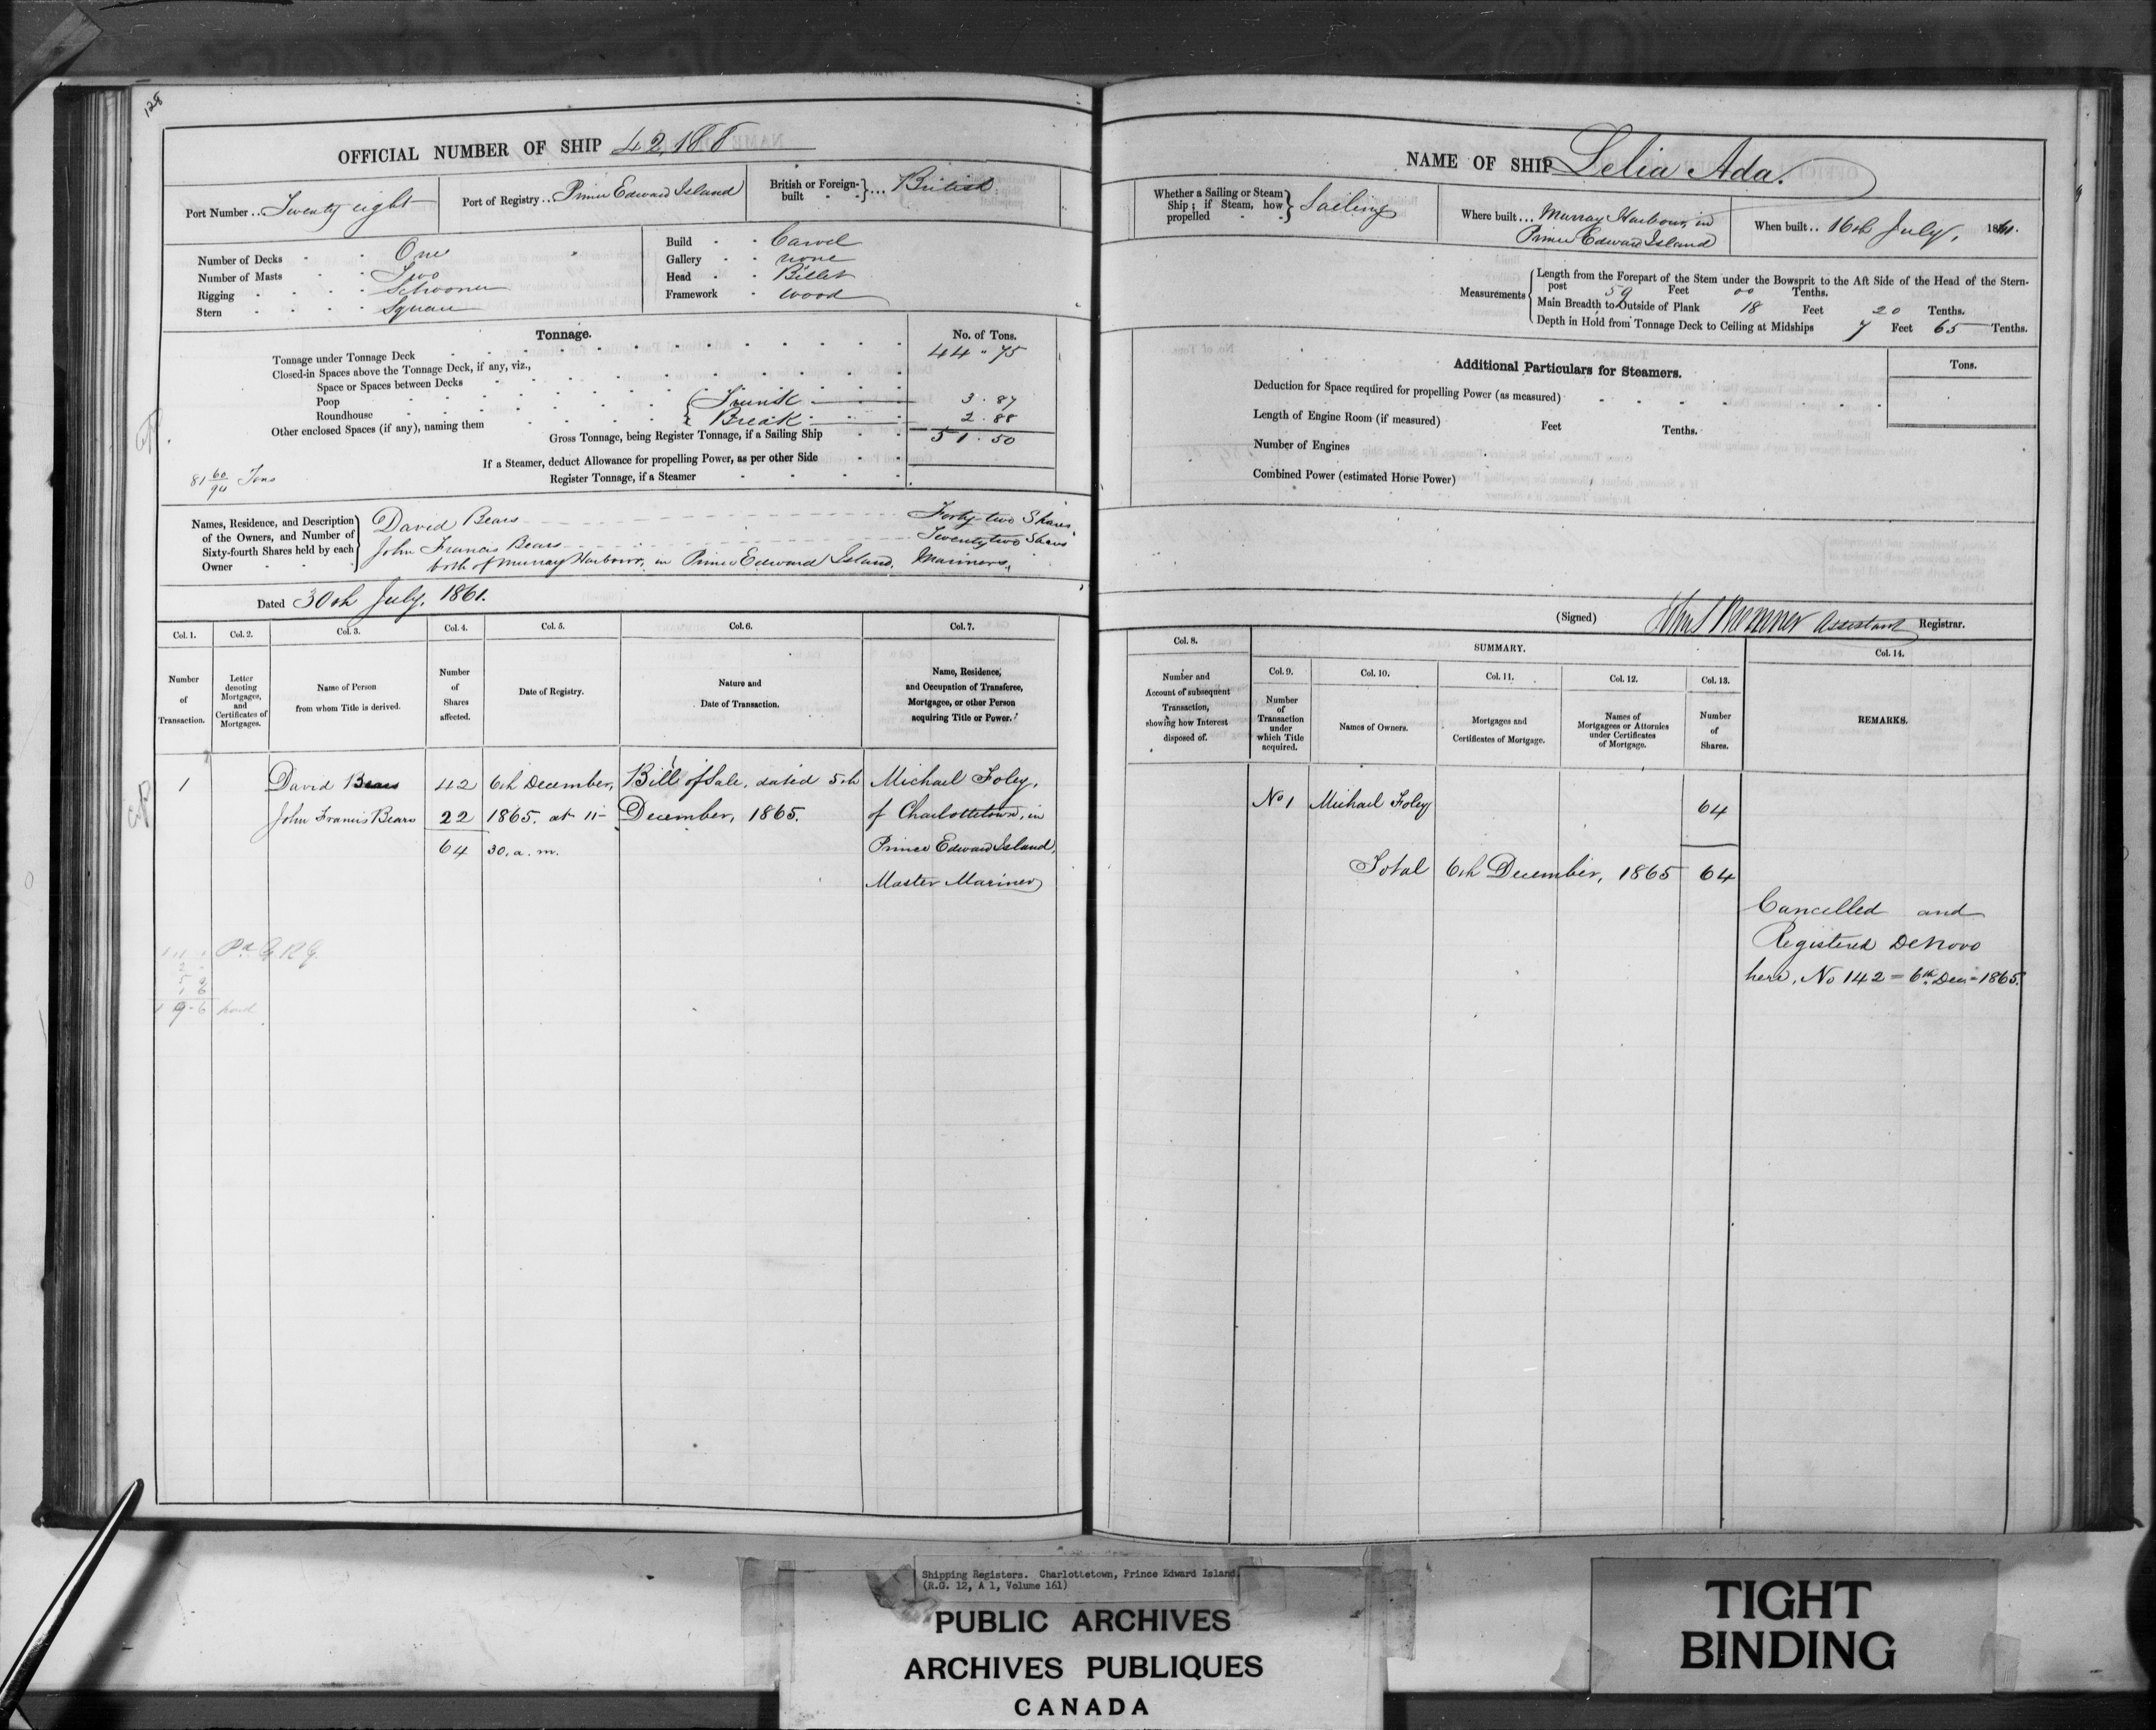 128
OFFICIAL NUMBER OF SHIP 42,188
Port Number .. Twenty eight
Port of Registry .. Prince Edward Island
British or Foreign-built } ... British
Number of Decks One
Number of Masts Two
Rigging Schooner
Stern Square
Build Carvel
Gallery none
Head Billet
Framework wood
Tonnage. No. of Tons.
Tonnage under Tonnage Deck 44 " 75
Closed-in Spaces above the Tonnage Deck, if any, viz.,
Space or Spaces between Decks
Poop { Trunk 3 . 87
Roundhouse
Other enclosed Spaces (if any), naming them { Break 2 . 88
Gross Tonnage, being Register Tonnage, if a Sailing Ship 51 . 50
If a Steamer, deduct Allowance for propelling Power, as per other Side
Register Tonnage, if a Steamer
81 60/94 Tons
Names, Residence, and Description of the Owners, and Number of Sixty-fourth Shares held by each Owner
David Bears Forty-two Shares
John Francis Bears Twenty two Shares
both of Murray Harbour, in Prince Edward Island, Mariners,
Dated 30th July, 1861.
Col. 1. Col. 2. Col. 3. Col. 4. Col. 5. Col. 6. Col. 7.
Number of Transaction.
Letter denoting Mortgages, and Certificates of Mortgages.
Name of Person from whom Title is derived.
Number of Shares affected.
Date of Registry.
Nature and Date of Transaction.
Name, Residence, and Occupation of Transferee, Mortgagee, or other Person acquiring Title or Power.
1 David Bears 42 6th December, Bill of Sale, dated 5th Michael Foley,
John Francis Bears 22 1865. at 11- December, 1865. of Charlottetown, in
64 30. a. m. Prince Edward Island,
Master Mariner
NAME OF SHIP Lelia Ada.
Whether a Sailing or Steam Ship ; if Steam, how propelled } Sailing
Where built ... Murray Harbour, in
Prince Edward Island
When built .. 16th July, 1861.
Measurements
Length from the Forepart of the Stem under the Bowsprit to the Aft Side of the Head of the Stern-
post 59 Feet 00 Tenths.
Main Breadth to Outside of Plank 18 Feet 20 Tenths.
Depth in Hold from Tonnage Deck to Ceiling at Midships 7 Feet 65 Tenths.
Additional Particulars for Steamers. Tons.
Deduction for Space required for propelling Power (as measured)
Length of Engine Room (if measured) Feet Tenths.
Number of Engines
Combined Power (estimated Horse Power)
(Signed) Assistant Registrar.
Col. 8. SUMMARY. Col. 14.
Col. 9. Col. 10. Col. 11. Col. 12. Col. 13.
Number and Account of subsequent Transaction, showing how Interest disposed of.
Number of Transaction under which Title acquired.
Names of Owners.
Mortgages and Certificates of Mortgage.
Names of Mortgagees or Attornies under Certificates of Mortgage.
Number of Shares.
REMARKS.
No 1 Michael Foley 64
Total 6th December, 1865 64
Cancelled and
Registered De Novo
here, No 142 = 6th Decr = 1865.
Shipping Registers. Charlottetown, Prince Edward Island.
(R.G. 12, A 1, Volume 161)
PUBLIC ARCHIVES
ARCHIVES PUBLIQUES
CANADA
TIGHT
BINDING